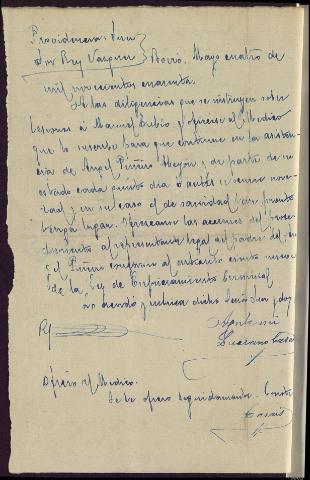 Providencia: Juez
Sor Rey Vazquez } Boiro, Mayo cuatro de
mil novecientos cuarenta.
A las diligencias que se instruyen sobre
lesiones a Manuel Tubío, y oficiese al Medico
que lo suscribe para que continue en la asisten-
cia de Angel Piñeiro y de parte de su
estado cada quinto dia o antes si ocurre nove-
dad y en su caso el de sanidad tan pronto
tenga lugar. Ofrezcanse las acciones del proce-
dimiento al representante legal del padre del
Piñeiro conforme al articulo ciento nueve
de la Ley de Enjuiciamiento Criminal
Lo mandó y rubrica dicho Señor Juez y doy fe
Ry
Ante mi
Luciano
Oficio al Medico.
Se le oficio seguidamente. Conste